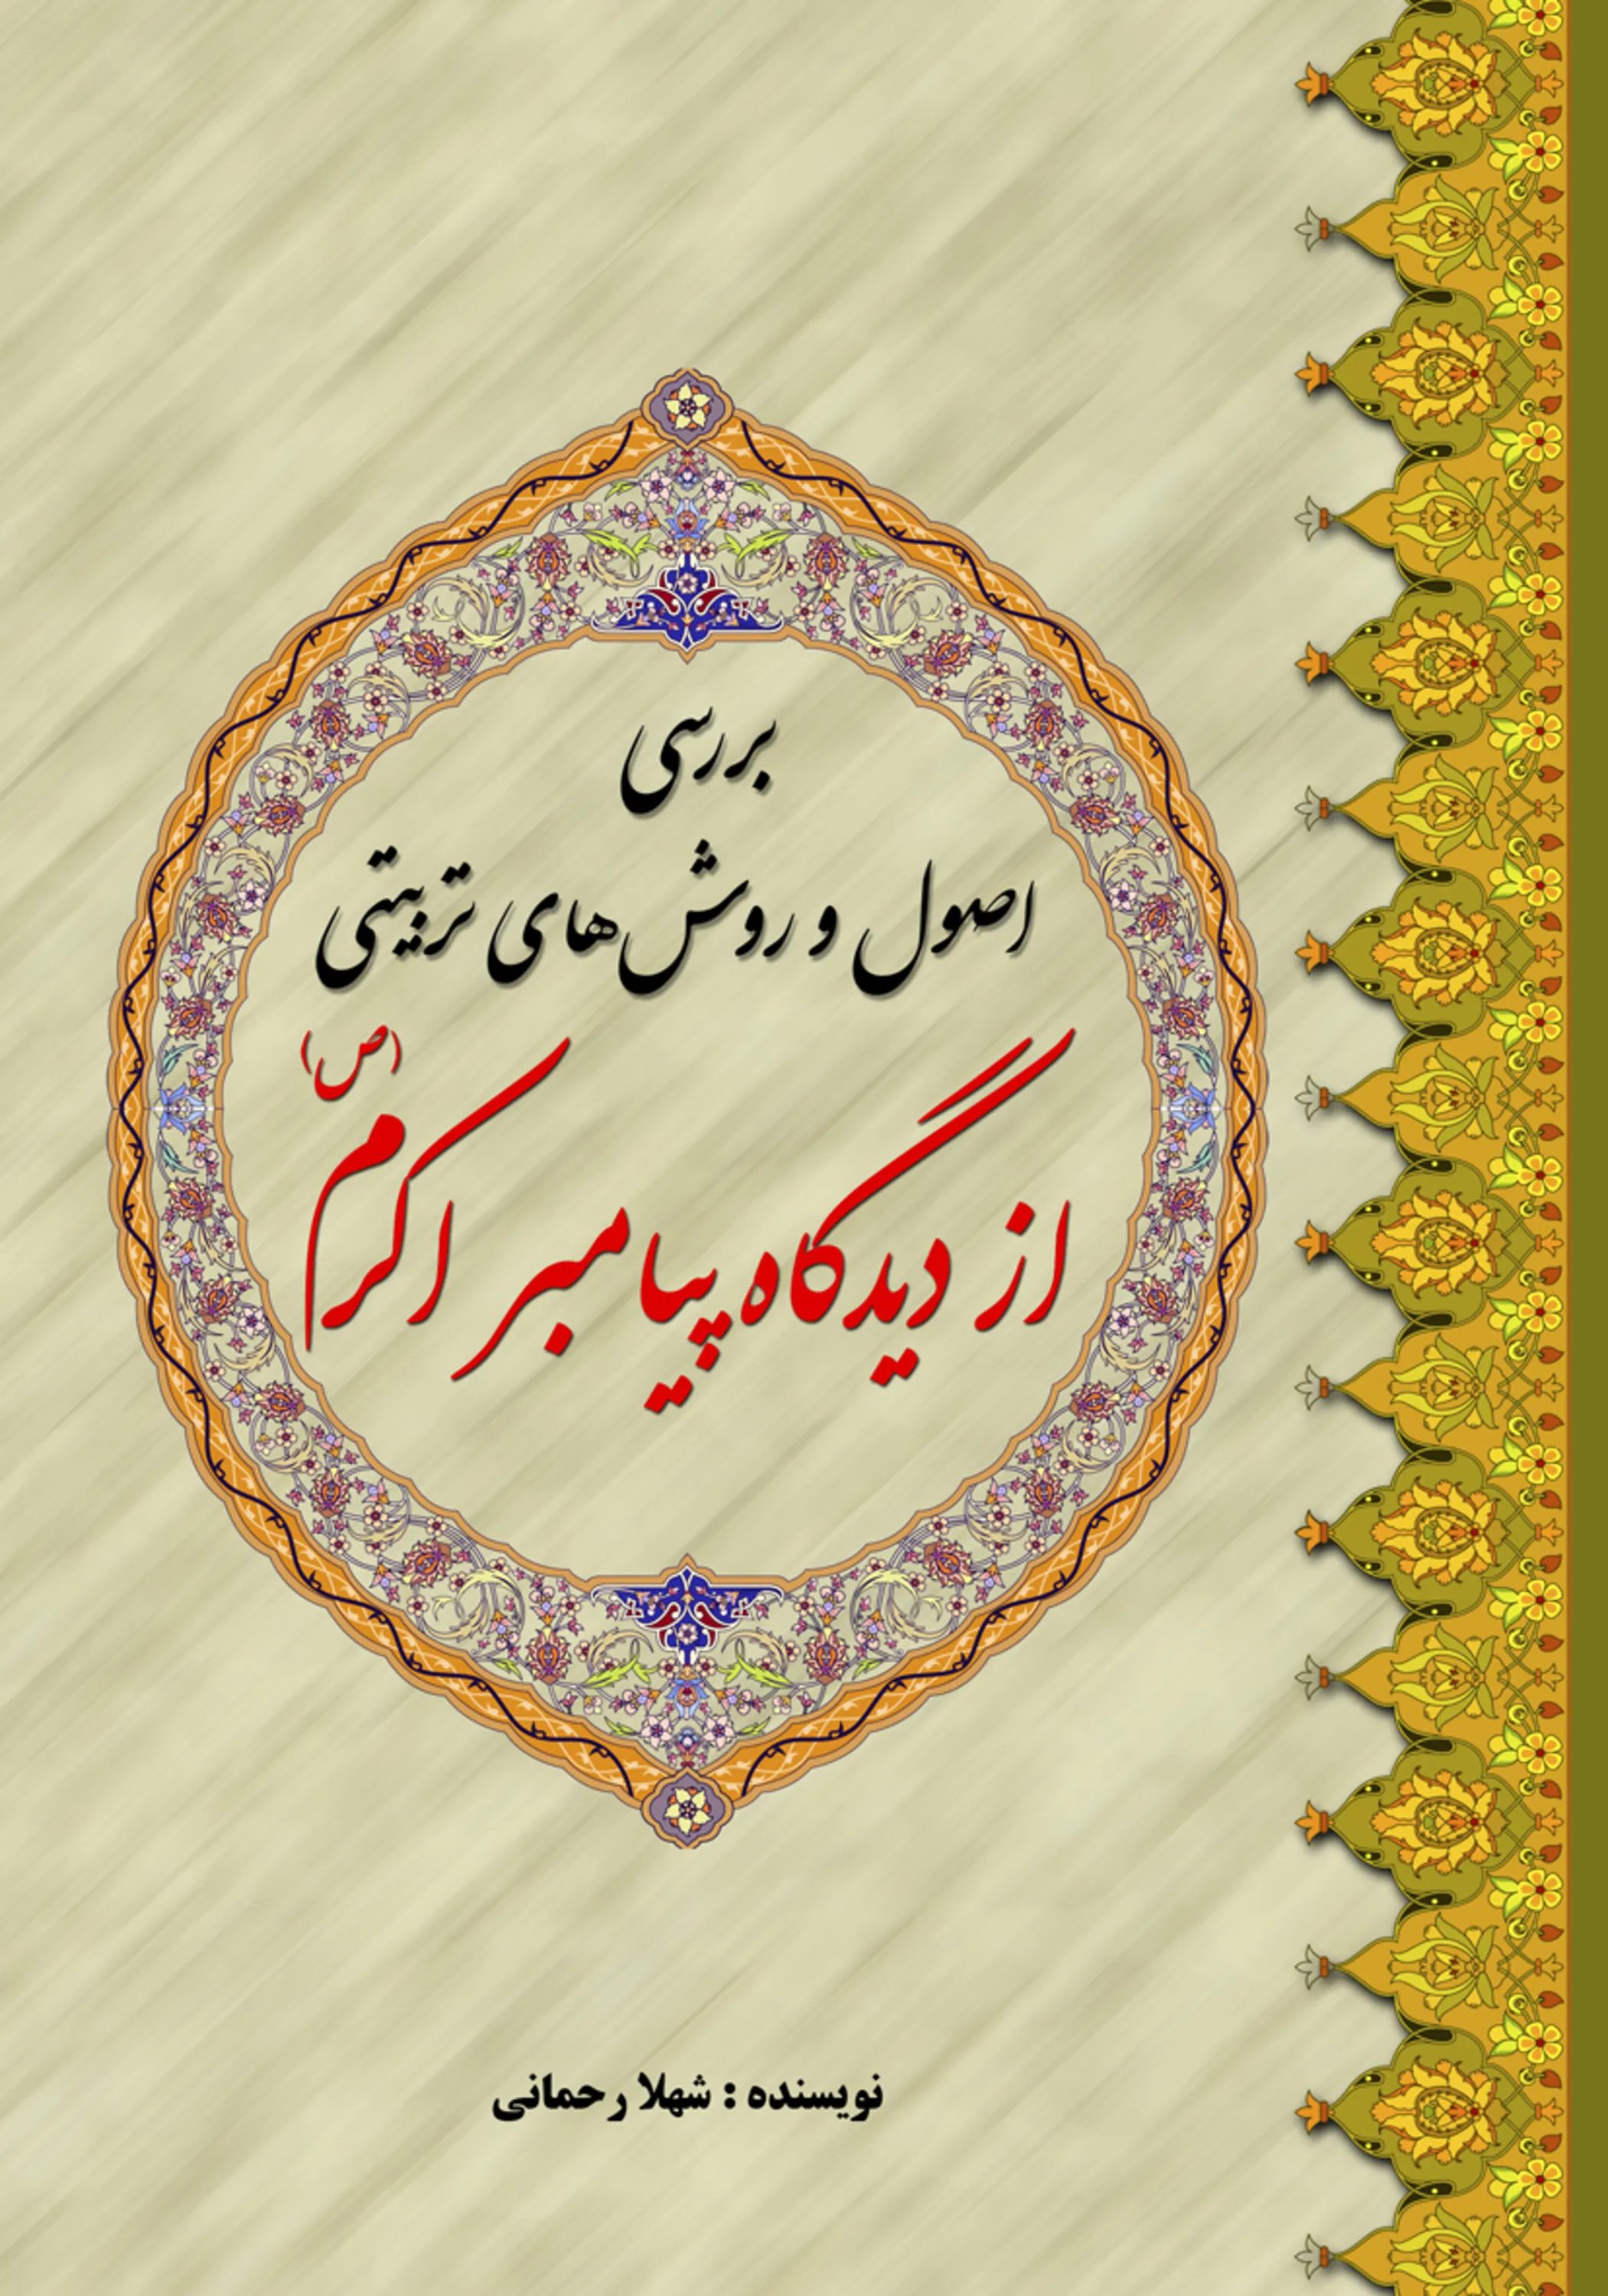 بررسی
اصول و روش‌های تربیتی
از دیدگاه پیامبر اکرم (ص)
نویسنده : شهلا رحمانی